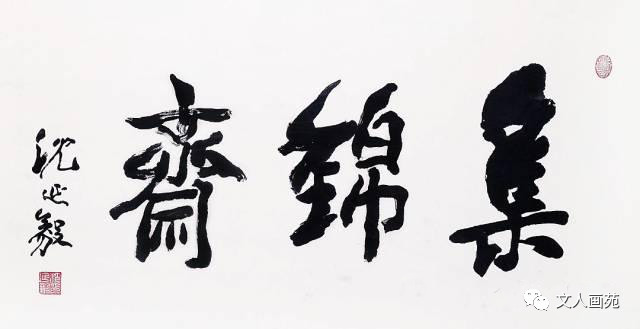 集錦齋
沈必毅
文人画苑